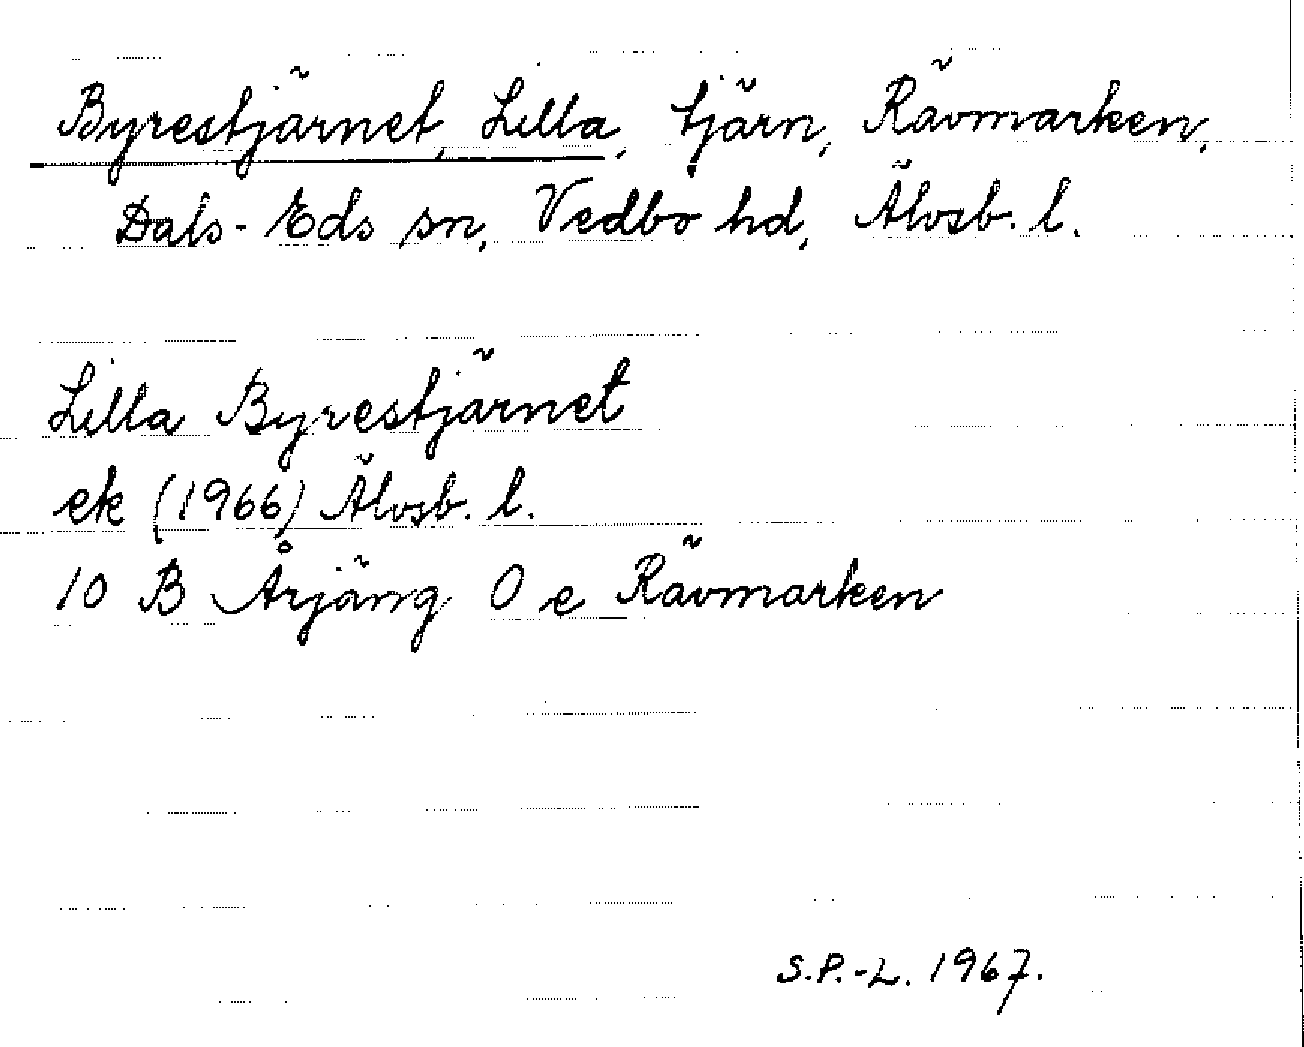 Byrestjärnet, Lilla, tjärn, Rävmarken,
Dals-Eds sn, Vedbo hd, Älvsb. l.
Lilla Byrestjärnet
ek (1966) Älvsb. l.
10 B Årjäng O e Rävmarken
S.P.-L. 1967.